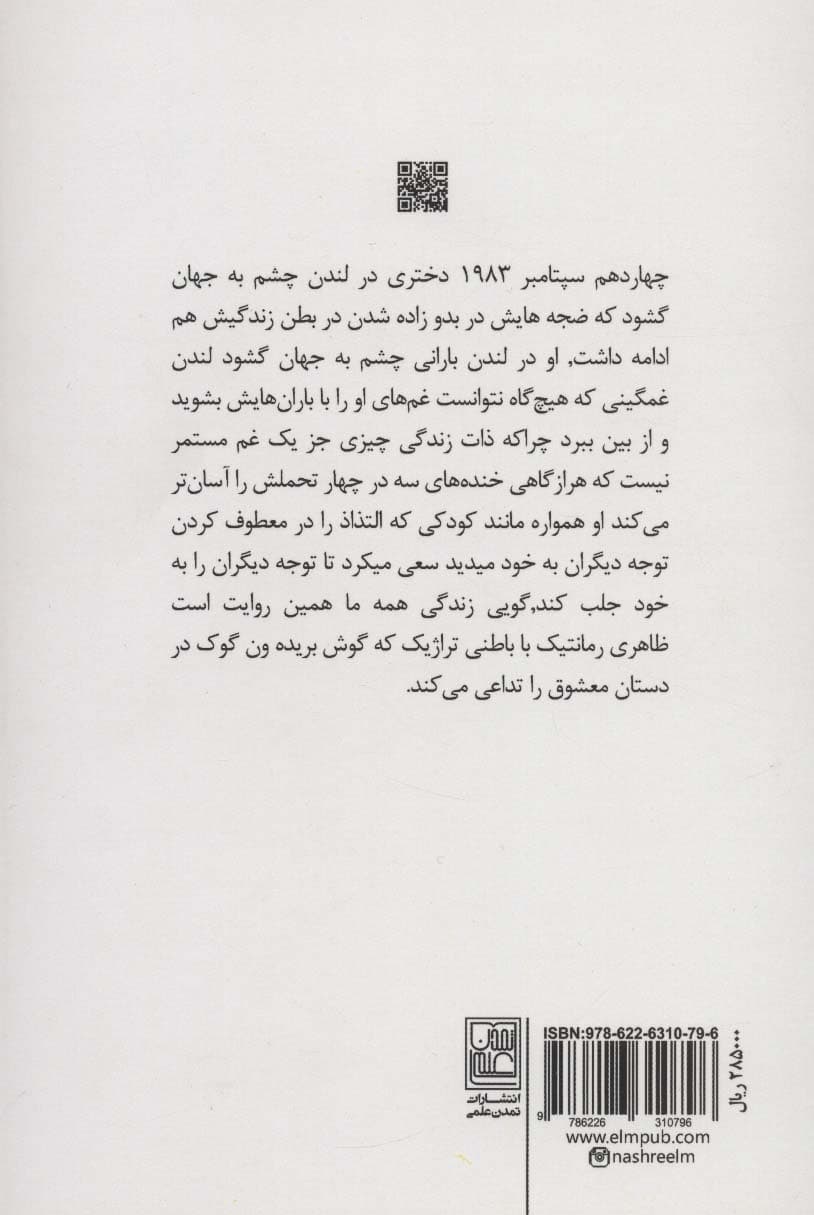 چهاردهم سپتامبر ۱۹۸۳ دختری در لندن چشم به جهان
گشود که ضجه هایش در بدو زاده شدن در بطن زندگیش هم
ادامه داشت, او در لندن بارانی چشم به جهان گشود لندن
غمگینی که هیچ‌گاه نتوانست غم‌های او را با باران‌هایش بشوید
و از بین ببرد چراکه ذات زندگی چیزی جز یک غم مستمر
نیست که هرازگاهی خنده‌های سه در چهار تحملش را آسان‌تر
می‌کند او همواره مانند کودکی که التذاذ را در معطوف کردن
توجه دیگران به خود میدید سعی میکرد تا توجه دیگران را به
خود جلب کند,گویی زندگی همه ما همین روایت است
ظاهری رمانتیک با باطنی تراژیک که گوش بریده ون گوک در
دستان معشوق را تداعی می‌کند.
ISBN:978-622-6310-79-6
9 786226 310796
۲۸۵۰۰۰ ریال
www.elmpub.com
nashreelm
تمدن علمی
انتشارات
تمدن‌علمی